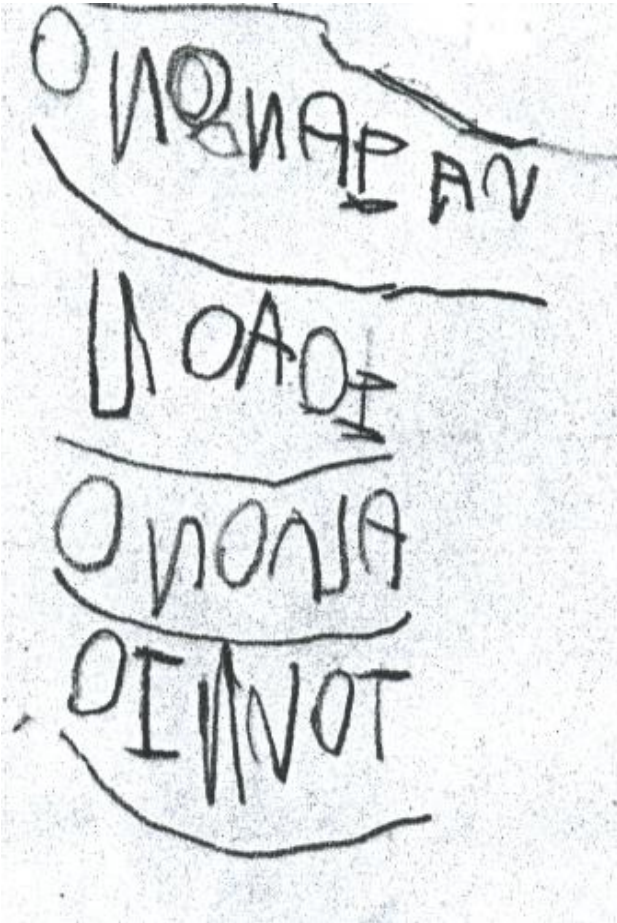 ONONAPAN
NOAOI
ONONJA
OINNOT